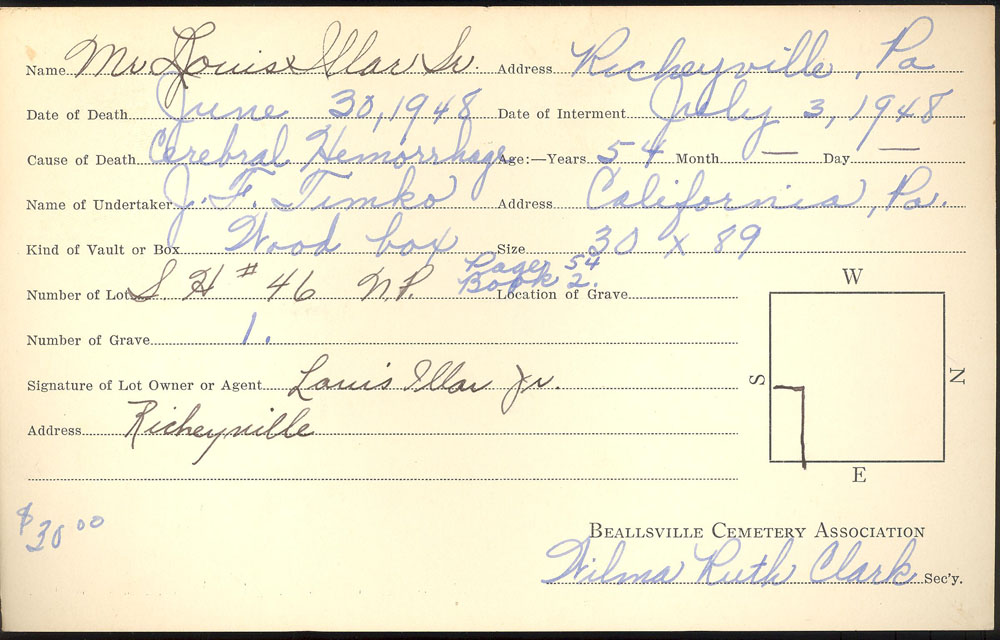 Name Mr Louis Illar Sr. Address Richeyville, Pa
Date of Death June 30, 1948 Date of Interment July 3, 1948
Cause of Death Cerebral Hemorrhage Age:—Years 54 Month — Day —
Name of Undertaker J. F. Timko Address California, Pa.
Kind of Vault or Box Wood box Size 30 x 89
Page 54
Number of Lot S H # 46 N.P. Book 2. Location of Grave
W
Number of Grave 1.
S N
Signature of Lot Owner or Agent Louis Illar Jr.
Address Richeyville
E
$30 00
BEALLSVILLE CEMETERY ASSOCIATION
Wilma Ruth Clark Sec'y.